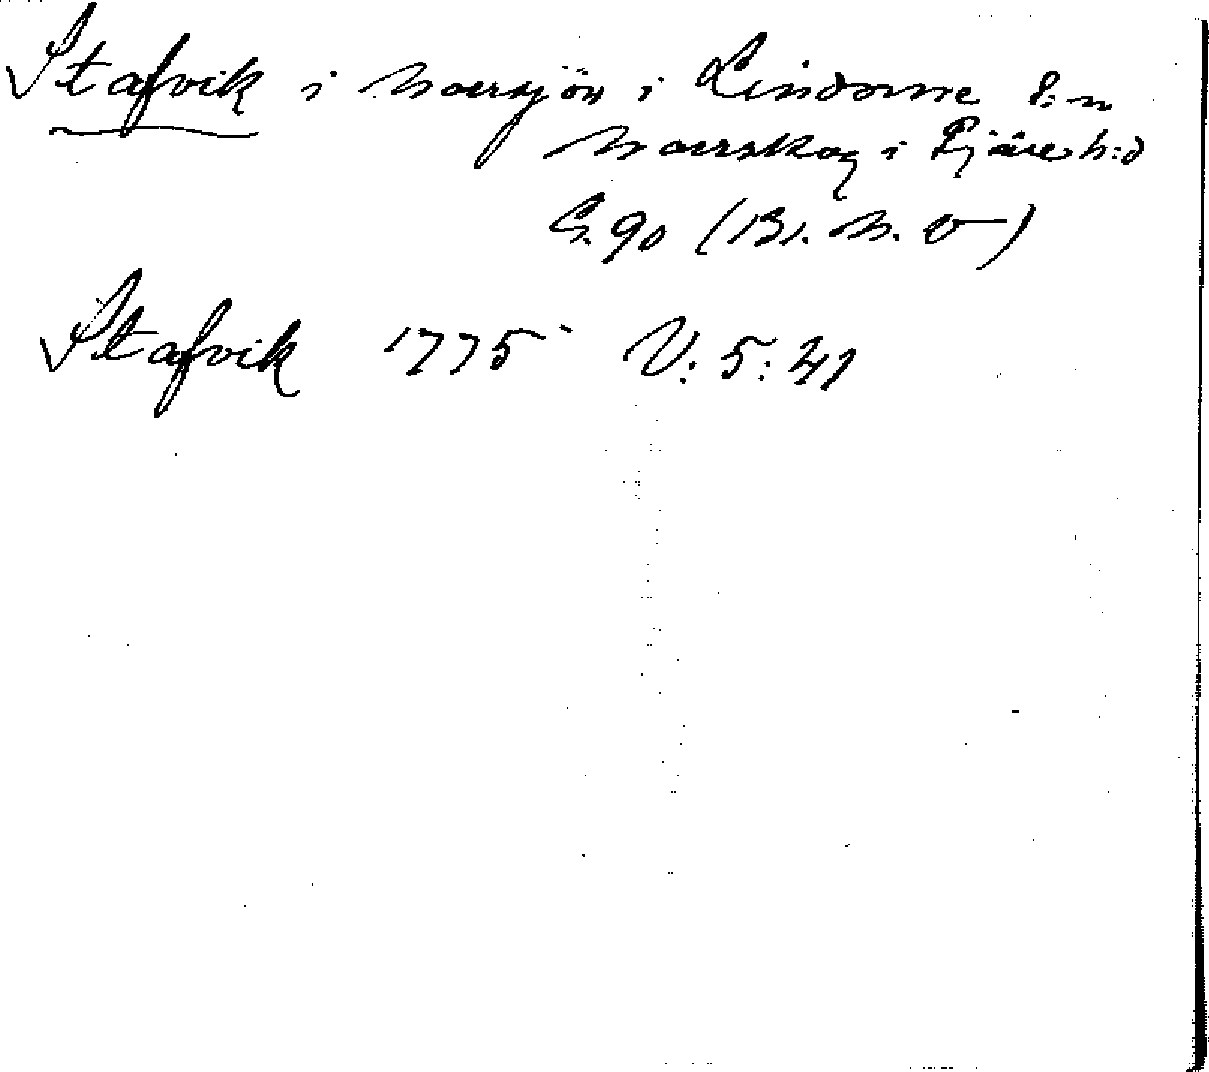 Stafvik i Norsjön i Lindome s:n
i Fjäre h:d
S. 90
Stafvik 1775 V: 5: 41